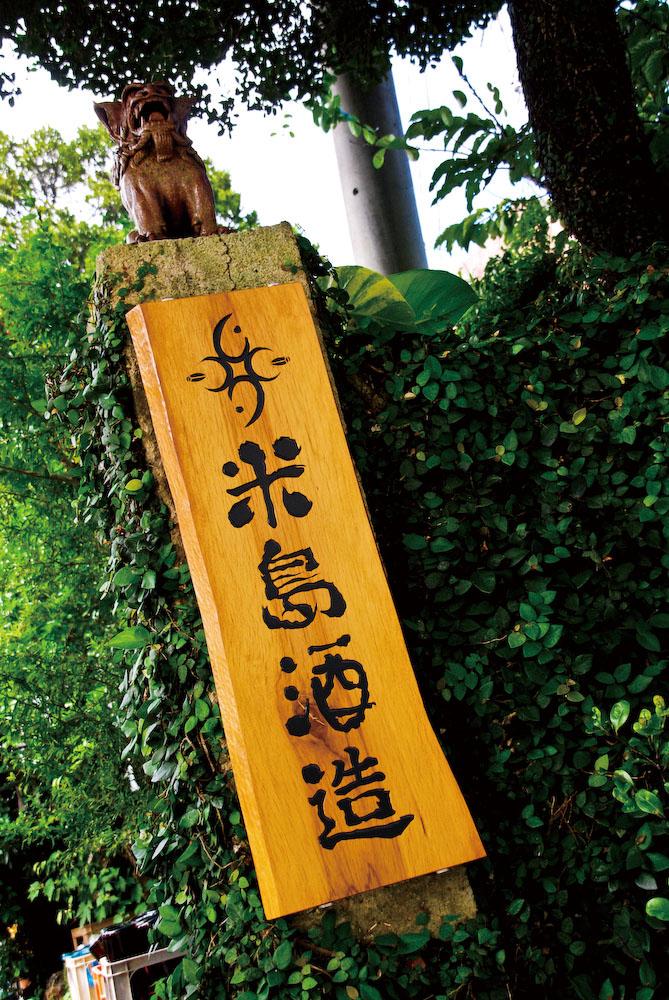 米島酒造